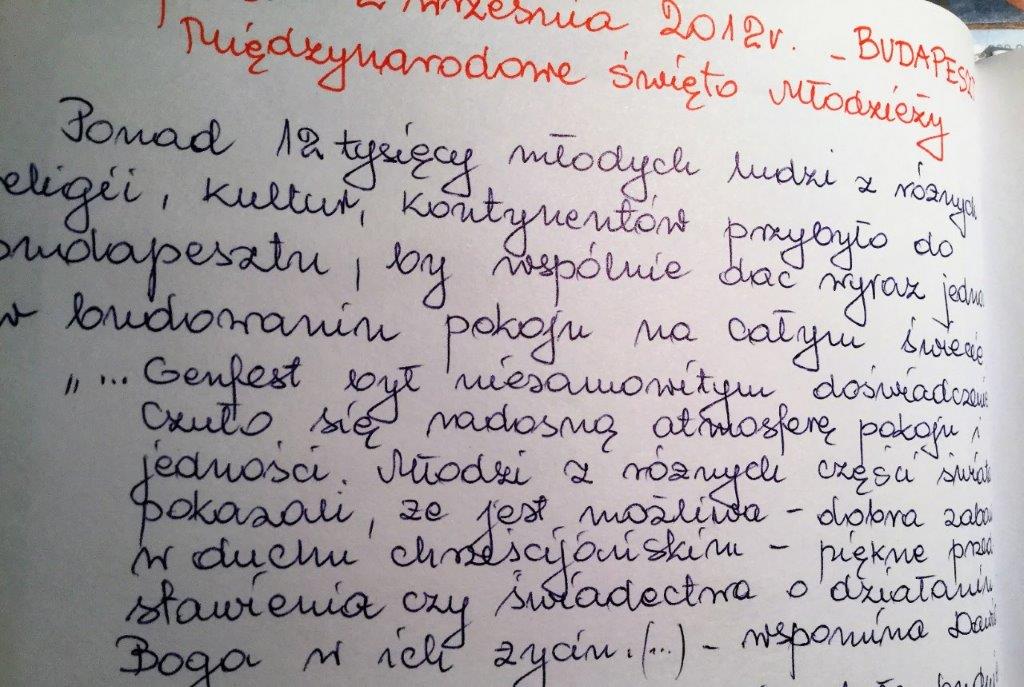 2 września 2012r. - BUDAPESZ
Międzynarodowe święto Młodzieży
Ponad 12 tysięcy młodych ludzi z różnych
eligii, kultur, kontynentów przybyło do
udapesztu, by wspólnie dać wyraz jedno
w budowaniu pokoju na całym świecie
„... Genfest był niesamowitym doświadczenie
Czuło się radosną atmosferę pokoju i
jedności. Młodzi z różnych części świat
pokazali, że jest możliwa - dobra zaba
w duchu chrześcijańskim - piękne przed
stawienia czy świadectwa o działaniu
Boga w ich życiu. (...) - wspomina Dawid